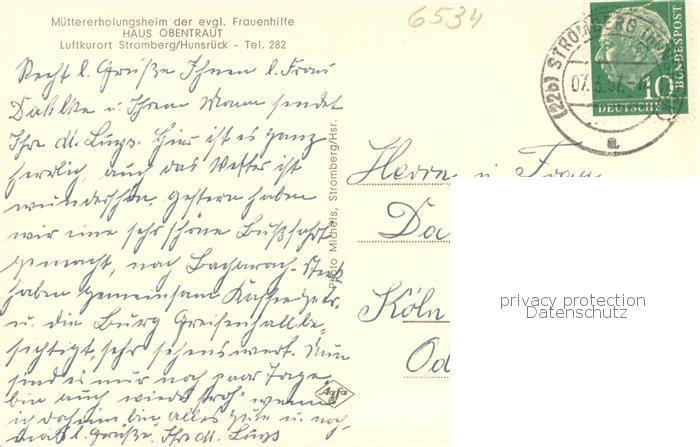 Müttererholungsheim der evgl. Frauenhilfe
HAUS OBENTRAUT
Luftkurort Stromberg/Hunsrück - Tel. 282
6534
(22b) STROMBERG
07.
a
10
DEUTSCHE
BUNDESPOST
Recht l. Grüße Ihnen l. Frau
Dahlke u. Ihrem Mann sendet
Ihre M. Lugs. Hier ist es ganz
herrlich, auch das Wetter ist
wunderschön, gestern haben
wir eine sehr schöne Busfahrt
gemacht, nach Bacharach-
haben gemeinsam Kaffee
u. die Burg be-
sichtigt, sehr sehenswert. Nun
sind es nur noch paar Tage,
bin auch wieder froh wenn
ich daheim bin. Alles Gute u. noch-
mals l. Grüße, Ihre M. Lugs
Photo Michels, Stromberg/Hsr.
Agfa
Herrn u. Frau
Da
Köln
Od
privacy protection
Datenschutz